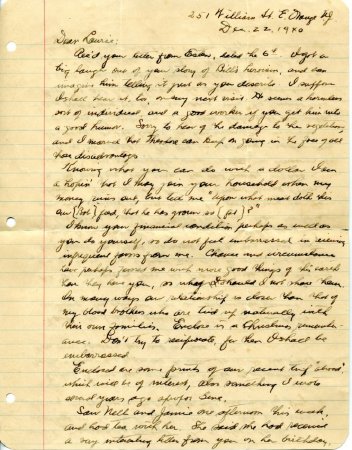 251 William St. E. Orange NJ.
Dec. 22, 1940
Dear Laurie:
Rec'd your letter from dated the 6th. I got a
big laugh out of your story of Bill's heroism, and can
imagine him telling it just as you describe. I suppose
I shall hear it, too, on my next visit. He seems a harmless
sort of individual and a good worker if you get him into
a good humor. Sorry to hear of the damage to the vegetation,
and I marvel that Theodore can keep on going in the face of all
these disadvantages.
Knowing what you can do with a dollar I am
a hopin' that I may join your household when my
money runs out, but tell me "Upon what meat doth this
our [ ] feed, that he has grown so [fat]?"
I know your financial condition perhaps as well as
you do yourself, so do not feel embarrassed in receiving
infrequent favors from me. Chance and circumstance
have perhaps favored me with more good things of this earth
than they have you, so why should I not share them.
In many ways our relationship is closer than that of
my blood brothers who are tied up naturally with
their own families. Enclosed is a Christmas remembr-
ance. Don't try to reciprocate, for then I shall be
embarrassed.
Enclosed are some prints of our recent trip "abroad"
which will be of interest, also something I wrote
several years ago apropos Gene.
Saw Nell and Jamie one afternoon this week,
and had tea with her. She said she had received
a very interesting letter from you on her birthday.